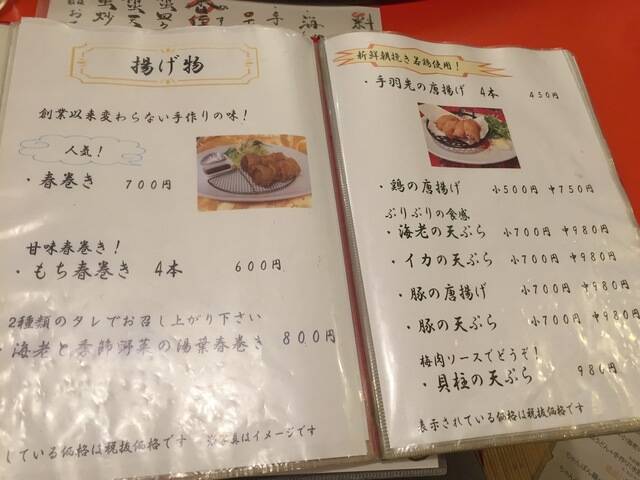 揚げ物
創業以来変わらない手作りの味!
人気!
・春巻き 700円
甘味春巻き!
・もち春巻き 4本 600円
2種類のタレでお召し上がり下さい
・海老と季節野菜の湯葉春巻き 800円
している価格は税抜価格です ※写真はイメージです
新鮮朝挽き若鶏使用!
・手羽先の唐揚げ 4本 450円
・鶏の唐揚げ 小500円 中750円
ぷりぷりの食感
・海老の天ぷら 小700円 中980円
・イカの天ぷら 小700円 中980円
・豚の唐揚げ 小700円 中980円
・豚の天ぷら 小700円 中980円
梅肉ソースでどうぞ!
・貝柱の天ぷら 980円
表示されている価格は税抜価格です